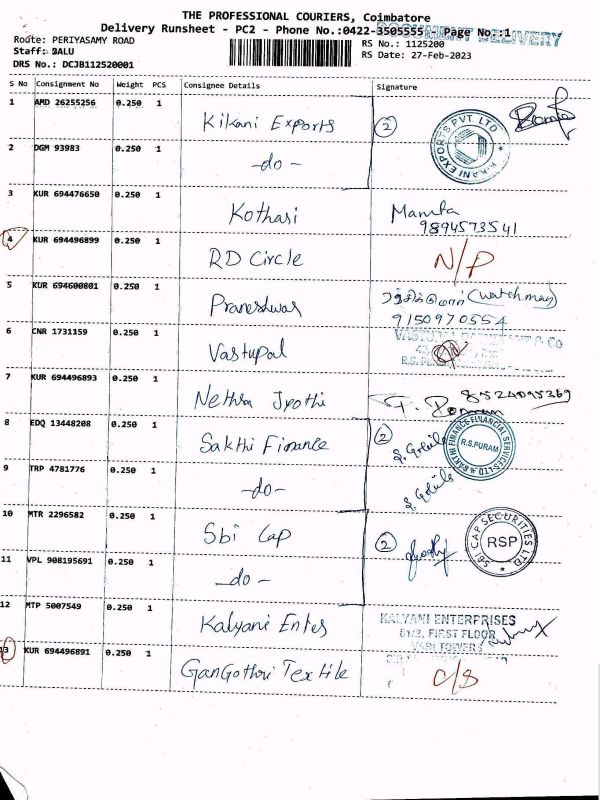 THE PROFESSIONAL COURIERS, Coimbatore
Delivery Runsheet - PC2 - Phone No.:0422-3505555 - Page No.:1
DOCUMENT DELIVERY
Route: PERIYASAMY ROAD
RS No.: 1125200
Staff: BALU
RS Date: 27-Feb-2023
DRS No.: DCJB112520001
S No Consignment No Weight PCS Consignee Details Signature
1 AMD 26255256 0.250 1 Kikani Exports 2
KIKANI EXPORTS PVT LTD
2 DGM 93983 0.250 1 -do-
3 KUR 694476650 0.250 1 Kothari Mamta
9894573541
4 KUR 694496899 0.250 1 RD Circle N/P
5 KUR 694600801 0.250 1 Praneshwar (watchman)
9150970554
6 CNR 1731159 0.250 1 Vastupal
7 KUR 694496893 0.250 1 Nethra Jyothi 8524095369
8 EDQ 13448208 0.250 1 Sakthi Finance 2
SAKTHI FINANCE FINANCIAL SERVICES LTD
R.S.PURAM
9 TRP 4781776 0.250 1 -do-
10 MTR 2296582 0.250 1 Sbi Cap 2
SBI CAP SECURITIES LTD.
RSP
11 VPL 908195691 0.250 1 -do-
12 MTP 5007549 0.250 1 Kalyani Enter
KALYANI ENTERPRISES
FIRST FLOOR
13 KUR 694496891 0.250 1 GanGothri Textile C/S